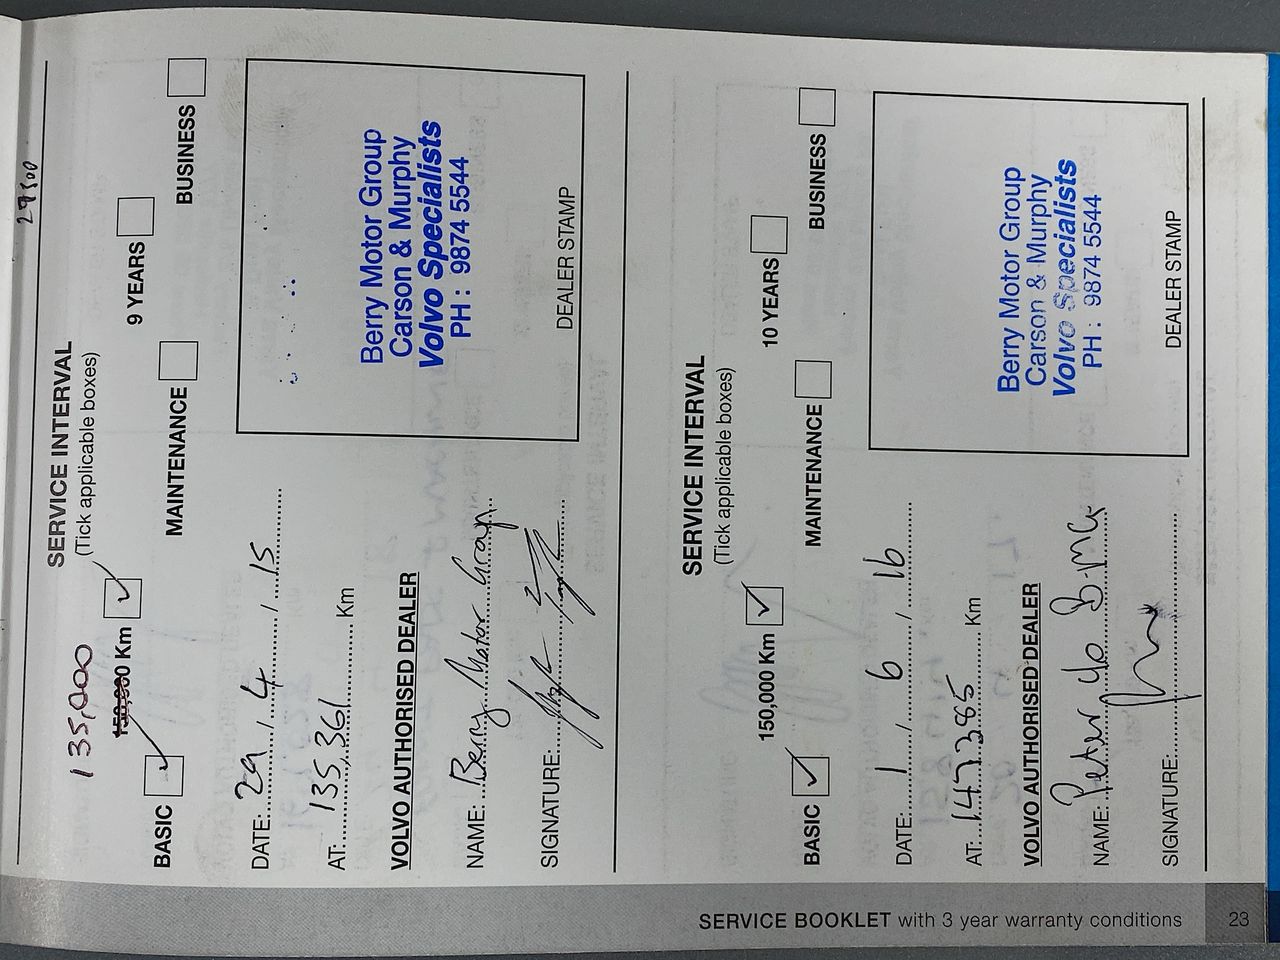 27500
SERVICE INTERVAL
(Tick applicable boxes)
135,000
150,000 Km
9 YEARS
BASIC
MAINTENANCE
BUSINESS
DATE: 29 / 4 / 15
AT: 135,361 Km
VOLVO AUTHORISED DEALER
NAME: Berry Motor Group
SIGNATURE:
Berry Motor Group
Carson & Murphy
Volvo Specialists
PH : 9874 5544
DEALER STAMP
SERVICE INTERVAL
(Tick applicable boxes)
150,000 Km
10 YEARS
BASIC
MAINTENANCE
BUSINESS
DATE: 1 / 6 / 16
AT: 147385 Km
VOLVO AUTHORISED DEALER
NAME: Peter
SIGNATURE:
Berry Motor Group
Carson & Murphy
Volvo Specialists
PH : 9874 5544
DEALER STAMP
SERVICE BOOKLET with 3 year warranty conditions
23